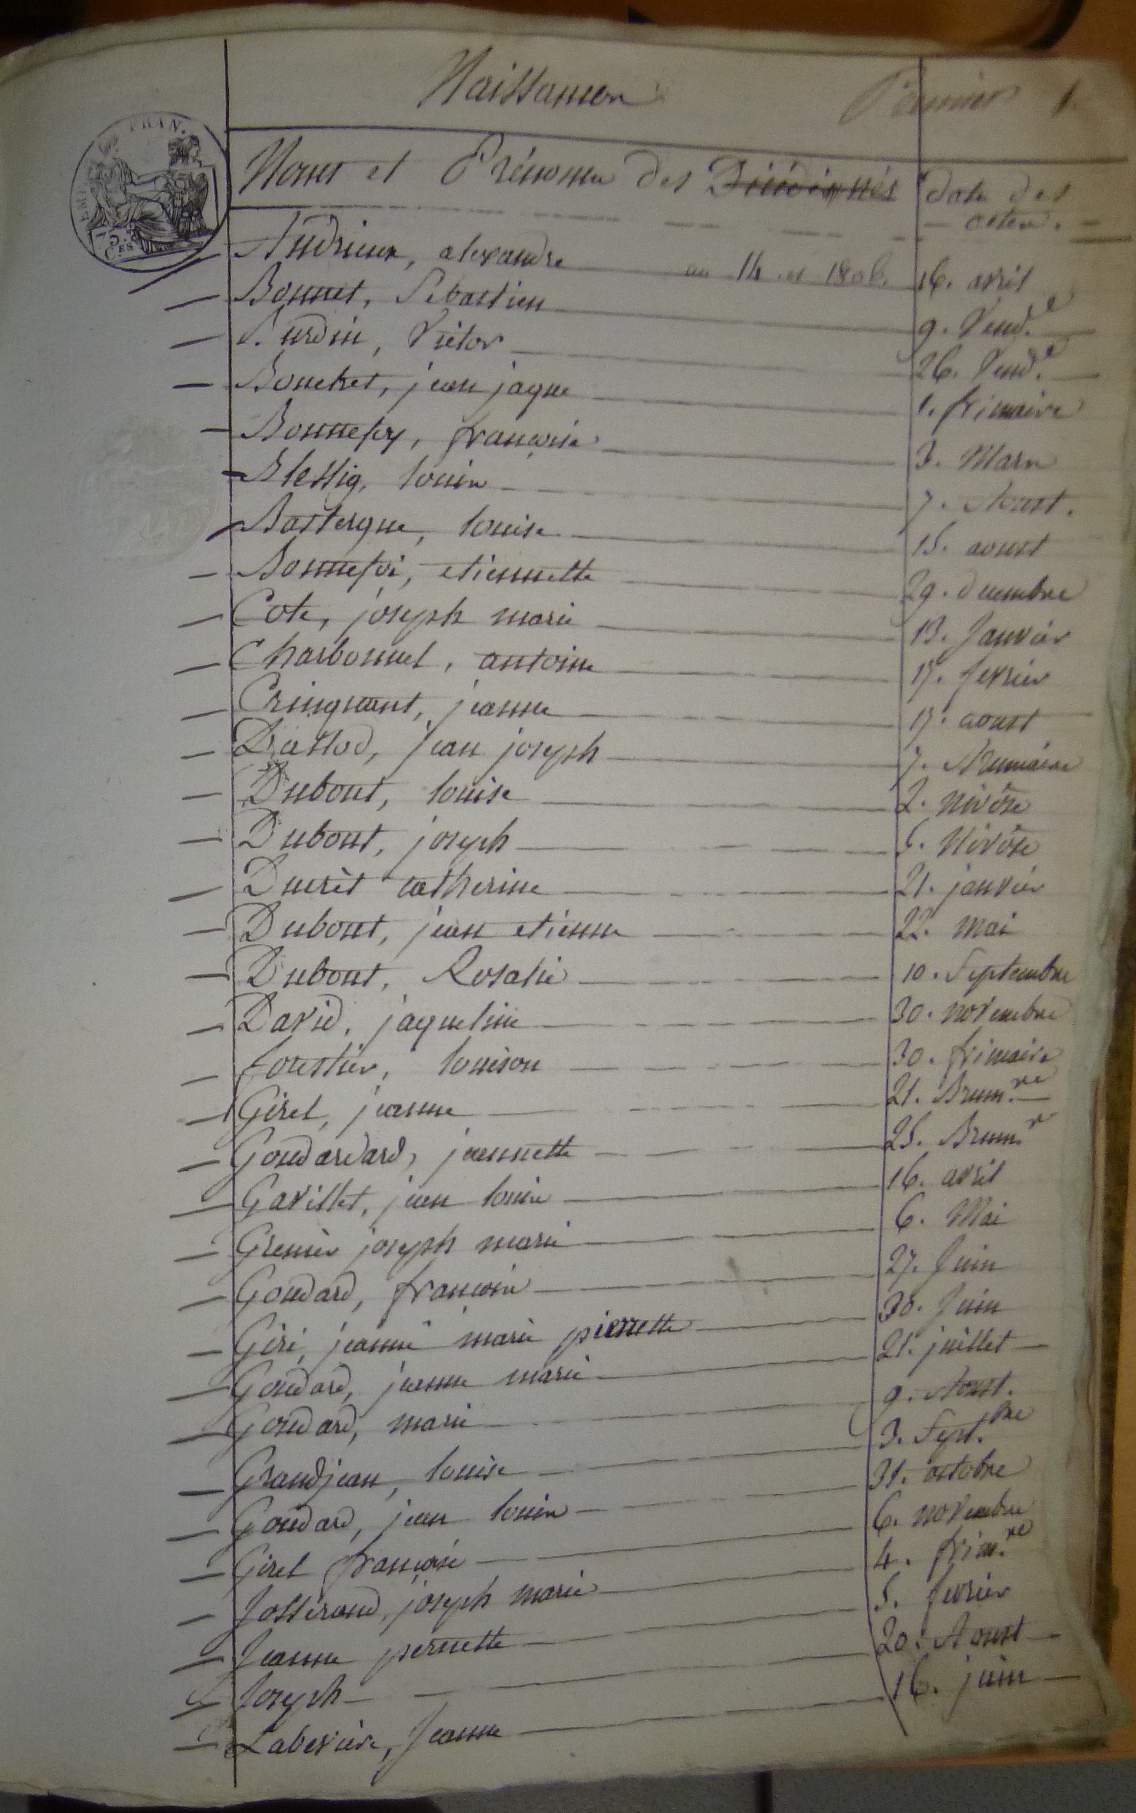 Naissances
Premier 1
Noms et Prénoms des Décédés nés date des
actes.
EMP. FRAN.
75 C.ES
Andrieux, alexandre an 14 et 1806. 16. avril
Bonnet, Sébastien 9. Vend.e
Burdin, Victor 26. Vend.e
Bouchet, jean jaque 1. frimaire
Bonnefoy, françoise 3. Mars
Blessig, louis 7. Aoust.
Bastergue, louise 15. aoust
Bonnefoi, etiennette 29. decembre
Cote, joseph marie 13. Janvier
Charbonnet, antoine 17. fevrier
Cringuant, jeanne 17. aoust
Dassod, jean joseph 7. Brumaire
Dubout, louise 2. nivôse
Dubout, joseph 5. Nivôse
Ducrêt catherine 21. janvier
Dubout, jean etienne 22. mai
Dubout, Rosalie 10. Septembre
David, jaqueline 30. novembre
forestier, louison 30. frimaire
Giret, jeanne 21. Brum.re
Goudardard, jeannette 25. Brum.r
Gavillet, jean louis 16. avril
Grenier joseph marie 6. Mai
Goudard, francois 27. Juin
Giri, jeanne marie pierrette 30. Juin
Goudard, jeanne marie 21. juillet
Goudard, marie 9. Aoust.
Grandjean, louise 3. Sept.bre
Goudard, jean louis 31. octobre
Giret françoise 6. novembre
Josserand, joseph marie 4. frim.re
Jeanne pernette 5. fevrier
Joseph 20. Aoust
Laberière, Jeanne 16. juin